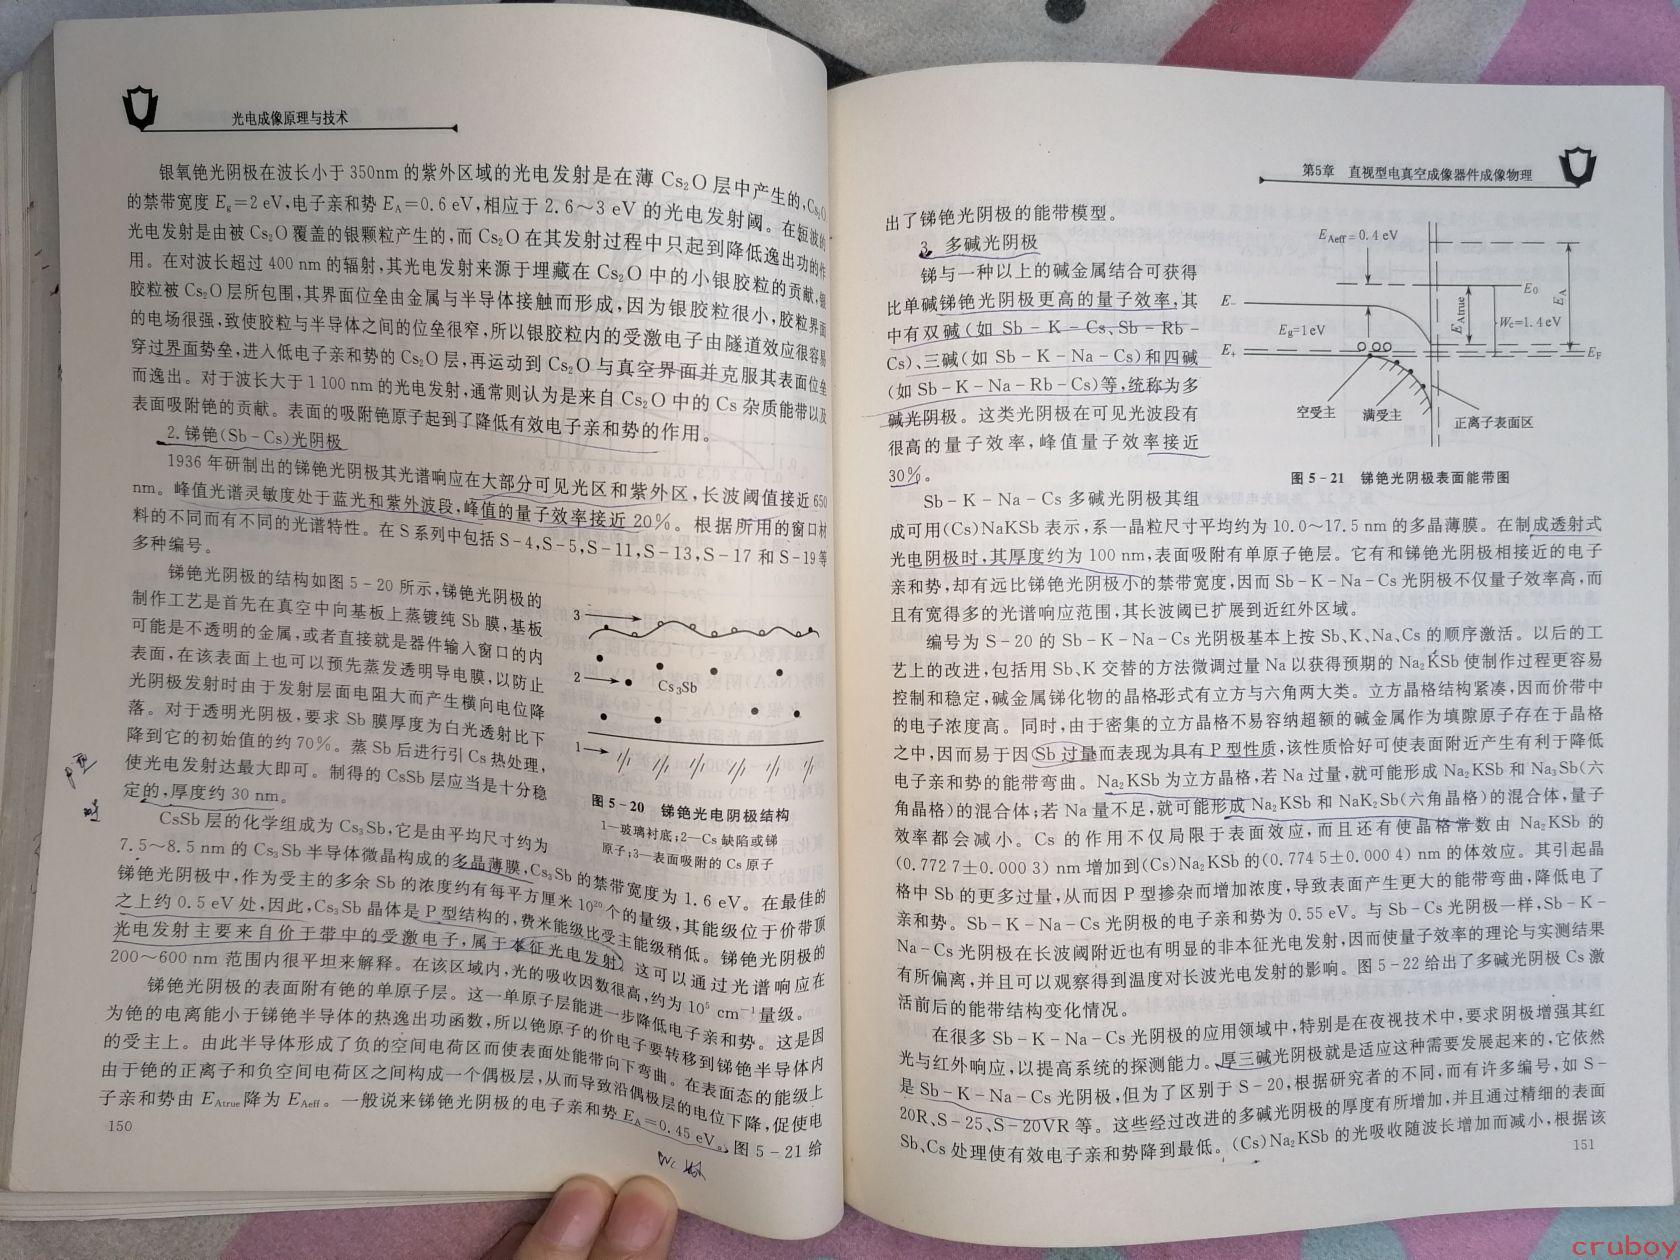 光电成像原理与技术
银氧铯光阴极在波长小于350nm的紫外区域的光电发射是在薄Cs₂O层中产生的,Cs₂O
的禁带宽度Eg=2 eV,电子亲和势EA=0.6 eV,相应于2.6～3 eV的光电发射阈。在短波的
光电发射是由被Cs₂O覆盖的银颗粒产生的,而Cs₂O在其发射过程中只起到降低逸出功的作
用。在对波长超过400 nm的辐射,其光电发射来源于埋藏在Cs₂O中的小银胶粒的贡献,银
胶粒被Cs₂O层所包围,其界面位垒由金属与半导体接触而形成,因为银胶粒很小,胶粒界面
的电场很强,致使胶粒与半导体之间的位垒很窄,所以银胶粒内的受激电子由隧道效应很容易
穿过界面势垒,进入低电子亲和势的Cs₂O层,再运动到Cs₂O与真空界面并克服其表面位垒
而逸出。对于波长大于1 100 nm的光电发射,通常则认为是来自Cs₂O中的Cs杂质能带以及
表面吸附铯的贡献。表面的吸附铯原子起到了降低有效电子亲和势的作用。
2.锑铯(Sb-Cs)光阴极
1936年研制出的锑铯光阴极其光谱响应在大部分可见光区和紫外区,长波阈值接近650
nm。峰值光谱灵敏度处于蓝光和紫外波段,峰值的量子效率接近20%。根据所用的窗口材
料的不同而有不同的光谱特性。在S系列中包括S-4,S-5,S-11,S-13,S-17和S-19等
多种编号。
锑铯光阴极的结构如图5-20所示,锑铯光阴极的
制作工艺是首先在真空中向基板上蒸镀纯Sb膜,基板
可能是不透明的金属,或者直接就是器件输入窗口的内
表面,在该表面上也可以预先蒸发透明导电膜,以防止
光阴极发射时由于发射层面电阻大而产生横向电位降
落。对于透明光阴极,要求Sb膜厚度为白光透射比下
降到它的初始值的约70%。蒸Sb后进行引Cs热处理,
使光电发射达最大即可。制得的CsSb层应当是十分稳
定的,厚度约30 nm。
3
2
Cs₃Sb
1
图5-20 锑铯光电阴极结构
1—玻璃衬底;2—Cs缺陷或锑
原子;3—表面吸附的Cs原子
P型
CsSb层的化学组成为Cs₃Sb,它是由平均尺寸约为
7.5～8.5 nm的Cs₃Sb半导体微晶构成的多晶薄膜,Cs₃Sb的禁带宽度为1.6 eV。在最佳的
锑铯光阴极中,作为受主的多余Sb的浓度约有每平方厘米10²⁰个的量级,其能级位于价带顶
之上约0.5 eV处,因此,Cs₃Sb晶体是P型结构的,费米能级比受主能级稍低。锑铯光阴极的
光电发射主要来自价于带中的受激电子,属于本征光电发射,这可以通过光谱响应在
200～600 nm范围内很平坦来解释。在该区域内,光的吸收因数很高,约为10⁵ cm⁻¹量级。
锑铯光阴极的表面附有铯的单原子层。这一单原子层能进一步降低电子亲和势。这是因
为铯的电离能小于锑铯半导体的热逸出功函数,所以铯原子的价电子要转移到锑铯半导体内
的受主上。由此半导体形成了负的空间电荷区而使表面处能带向下弯曲。在表面态的能级上
由于铯的正离子和负空间电荷区之间构成一个偶极层,从而导致沿偶极层的电位下降,促使电
子亲和势由EAtrue降为EAeff。一般说来锑铯光阴极的电子亲和势EA=0.45 eV。图5-21给
150
第5章 直视型电真空成像器件成像物理
出了锑铯光阴极的能带模型。
3. 多碱光阴极
锑与一种以上的碱金属结合可获得
比单碱锑铯光阴极更高的量子效率,其
中有双碱(如Sb-K-Cs、Sb-Rb-
Cs)、三碱(如Sb-K-Na-Cs)和四碱
(如Sb-K-Na-Rb-Cs)等,统称为多
碱光阴极。这类光阴极在可见光波段有
很高的量子效率,峰值量子效率接近
30%。
EAeff=0.4 eV
E₀
EA
E₋
EAtrue
Wc=1.4 eV
Eg=1eV
E₊
EF
空受主
满受主
正离子表面区
图5-21 锑铯光阴极表面能带图
Sb-K-Na-Cs多碱光阴极其组
成可用(Cs)NaKSb表示,系一晶粒尺寸平均约为10.0～17.5 nm的多晶薄膜。在制成透射式
光电阴极时,其厚度约为100 nm,表面吸附有单原子铯层。它有和锑铯光阴极相接近的电子
亲和势,却有远比锑铯光阴极小的禁带宽度,因而Sb-K-Na-Cs光阴极不仅量子效率高,而
且有宽得多的光谱响应范围,其长波阈已扩展到近红外区域。
编号为S-20的Sb-K-Na-Cs光阴极基本上按Sb、K、Na、Cs的顺序激活。以后的工
艺上的改进,包括用Sb、K交替的方法微调过量Na以获得预期的Na₂KSb使制作过程更容易
控制和稳定,碱金属锑化物的晶格形式有立方与六角两大类。立方晶格结构紧凑,因而价带中
的电子浓度高。同时,由于密集的立方晶格不易容纳超额的碱金属作为填隙原子存在于晶格
之中,因而易于因Sb过量而表现为具有P型性质,该性质恰好可使表面附近产生有利于降低
电子亲和势的能带弯曲。Na₂KSb为立方晶格,若Na过量,就可能形成Na₂KSb和Na₃Sb(六
角晶格)的混合体;若Na量不足,就可能形成Na₂KSb和NaK₂Sb(六角晶格)的混合体,量子
效率都会减小。Cs的作用不仅局限于表面效应,而且还有使晶格常数由Na₂KSb的
(0.772 7±0.000 3) nm增加到(Cs)Na₂KSb的(0.774 5±0.000 4) nm的体效应。其引起晶
格中Sb的更多过量,从而因P型掺杂而增加浓度,导致表面产生更大的能带弯曲,降低电了
亲和势。Sb-K-Na-Cs光阴极的电子亲和势为0.55 eV。与Sb-Cs光阴极一样,Sb-K-
Na-Cs光阴极在长波阈附近也有明显的非本征光电发射,因而使量子效率的理论与实测结果
有所偏离,并且可以观察得到温度对长波光电发射的影响。图5-22给出了多碱光阴极Cs激
活前后的能带结构变化情况。
在很多Sb-K-Na-Cs光阴极的应用领域中,特别是在夜视技术中,要求阴极增强其红
光与红外响应,以提高系统的探测能力。厚三碱光阴极就是适应这种需要发展起来的,它依然
是Sb-K-Na-Cs光阴极,但为了区别于S-20,根据研究者的不同,而有许多编号,如S-
20R、S-25、S-20VR等。这些经过改进的多碱光阴极的厚度有所增加,并且通过精细的表面
Sb、Cs处理使有效电子亲和势降到最低。(Cs)Na₂KSb的光吸收随波长增加而减小,根据该
151
cruboy